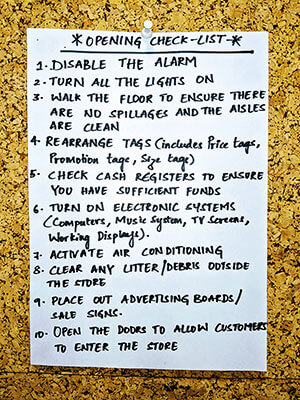 *OPENING CHECK-LIST-*
1. DISABLE THE ALARM
2. TURN ALL THE LIGHTS ON
3. WALK THE FLOOR TO ENSURE THERE
ARE NO SPILLAGES AND THE AISLES
ARE CLEAN
4. REARRANGE TAGS (includes Price tags,
Promotion tags, Size tags)
5. CHECK CASH REGISTERS TO ENSURE
YOU HAVE SUFFICIENT FUNDS
6. TURN ON ELECTRONIC SYSTEMS
(Computers, Music System, TV Screens,
Working Displays).
7. ACTIVATE AIR CONDITIONING
8. CLEAR ANY LITTER/DEBRIS OUTSIDE
THE STORE
9. PLACE OUT ADVERTISING BOARDS/
SALE SIGNS.
10. OPEN THE DOORS TO ALLOW CUSTOMERS
TO ENTER THE STORE